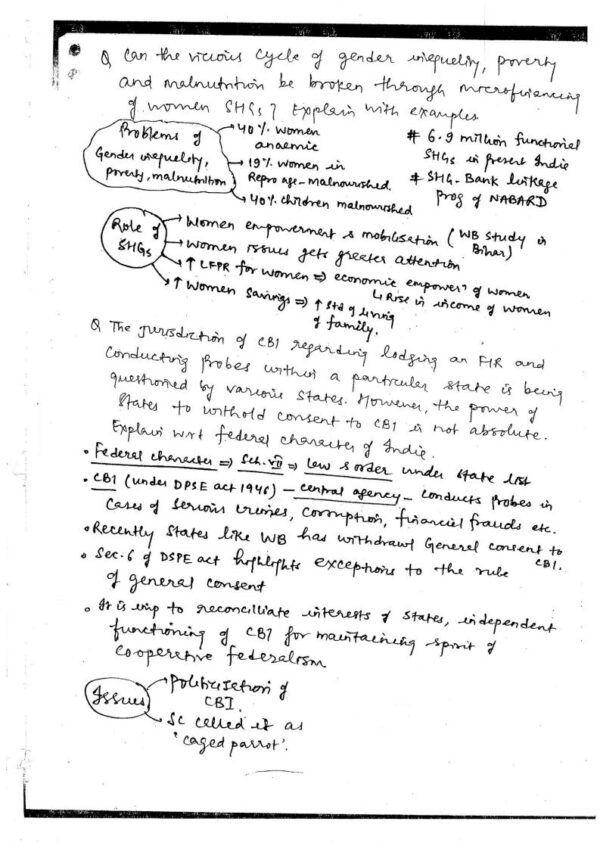 Q Can the vicious cycle of gender inequality, poverty
and malnutrition be broken through microfinancing
of women SHGs? Explain with examples
Problems of
Gender inequality,
poverty, malnutrition
→ 40% women
anaemic
→ 19% women in
Repro age-malnourished
→ 40% children malnourished
# 6.9 million functional
SHGs in present India
# SHG-Bank linkage
prog of NABARD
Role of
SHGs
→ Women empowerment & mobilisation (WB study in
Bihar)
→ Women issues gets greater attention
→ ↑ LFPR for women ⇒ economic empowerⁿ of women
↳ Rise in income of women
↑ Women savings ⇒ ↑ Std of living
of family.
Q The jurisdiction of CBI regarding lodging an FIR and
conducting probes within a particular state is being
questioned by various states. However, the power of
states to withold consent to CBI is not absolute.
Explain wrt federal character of India.
• Federal character ⇒ Sch. VII ⇒ Law & order under state list
• CBI (under DPSE act 1946) – central agency – conducts probes in
cases of serious crimes, corruption, financial frauds etc.
• Recently states like WB has withdrawl General consent to
CBI.
• Sec. 6 of DSPE act highlights exceptions to the rule
of general consent
• It is imp to reconciliate interests of states, independent
functioning of CBI for maintaining spirit of
cooperative federalism
Issues
→ Politicisation of
CBI.
→ SC called it as
'caged parrot'.